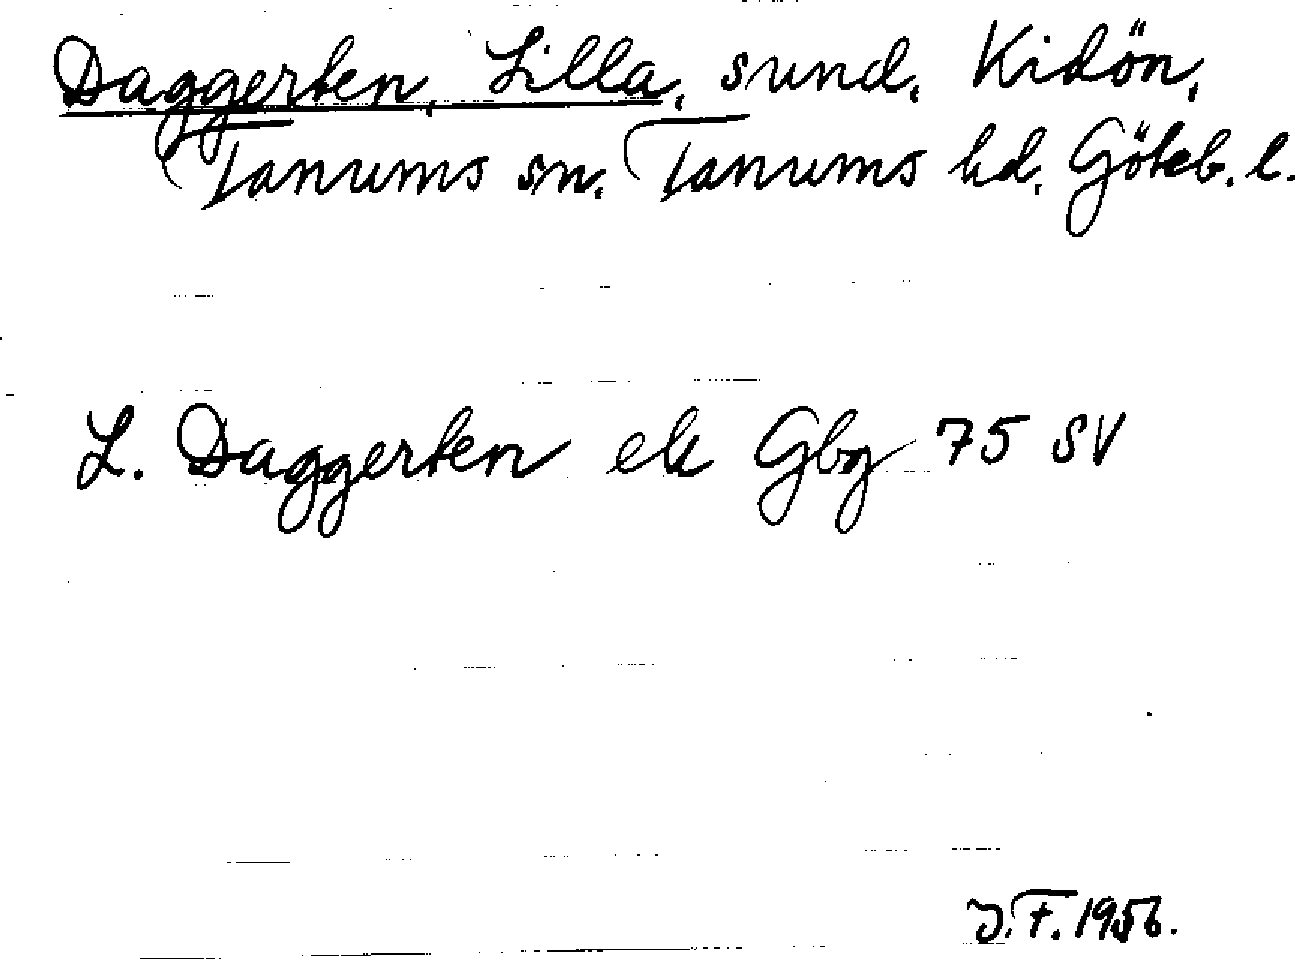 Daggerten, Lilla, sund, Kidön,
Tanums sn. Tanums hd. Göteb. l.
L. Daggerten ek Gbg 75 SV
J.F. 1956.